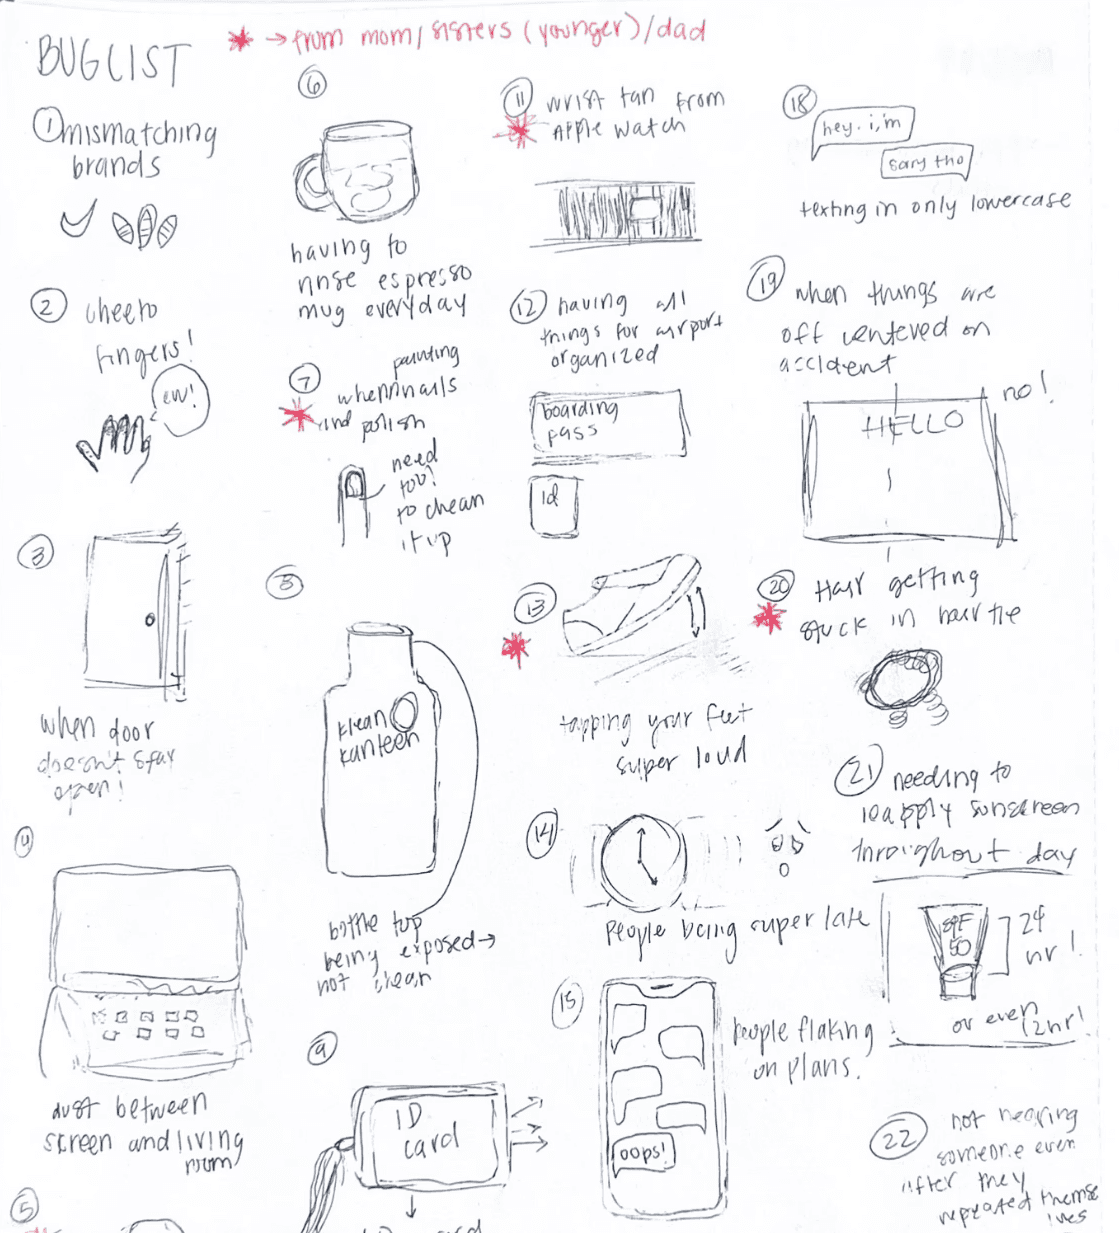 BUGLIST
* → from mom/sisters (younger)/dad
1 mismatching
brands
2 cheeto
fingers!
ew!
3
when door
doesn't stay
open!
dust between
screen and living
room
5
6
having to
rinse espresso
mug everyday
7
painting
when nails
and polish
need
too!
to clean
it up
8
klean
kanteen
bottle top
being exposed →
not clean
9
ID
card
11 wrist tan from
* Apple watch
12 having all
things for airport
organized
boarding
pass
id
13
*
tapping your feet
super loud
14
people being super late
15
people flaking
on plans.
oops!
18
hey. i,m
sary tho
texting in only lowercase
19 when things are
off centered on
accident
no!
HELLO
20 Hair getting
* stuck in hair tie
21 needing to
reapply sunscreen
throighout day
SPF
50
24
hr!
or even 12hr!
22 not hearing
someone even
after they
repeated themse
lves